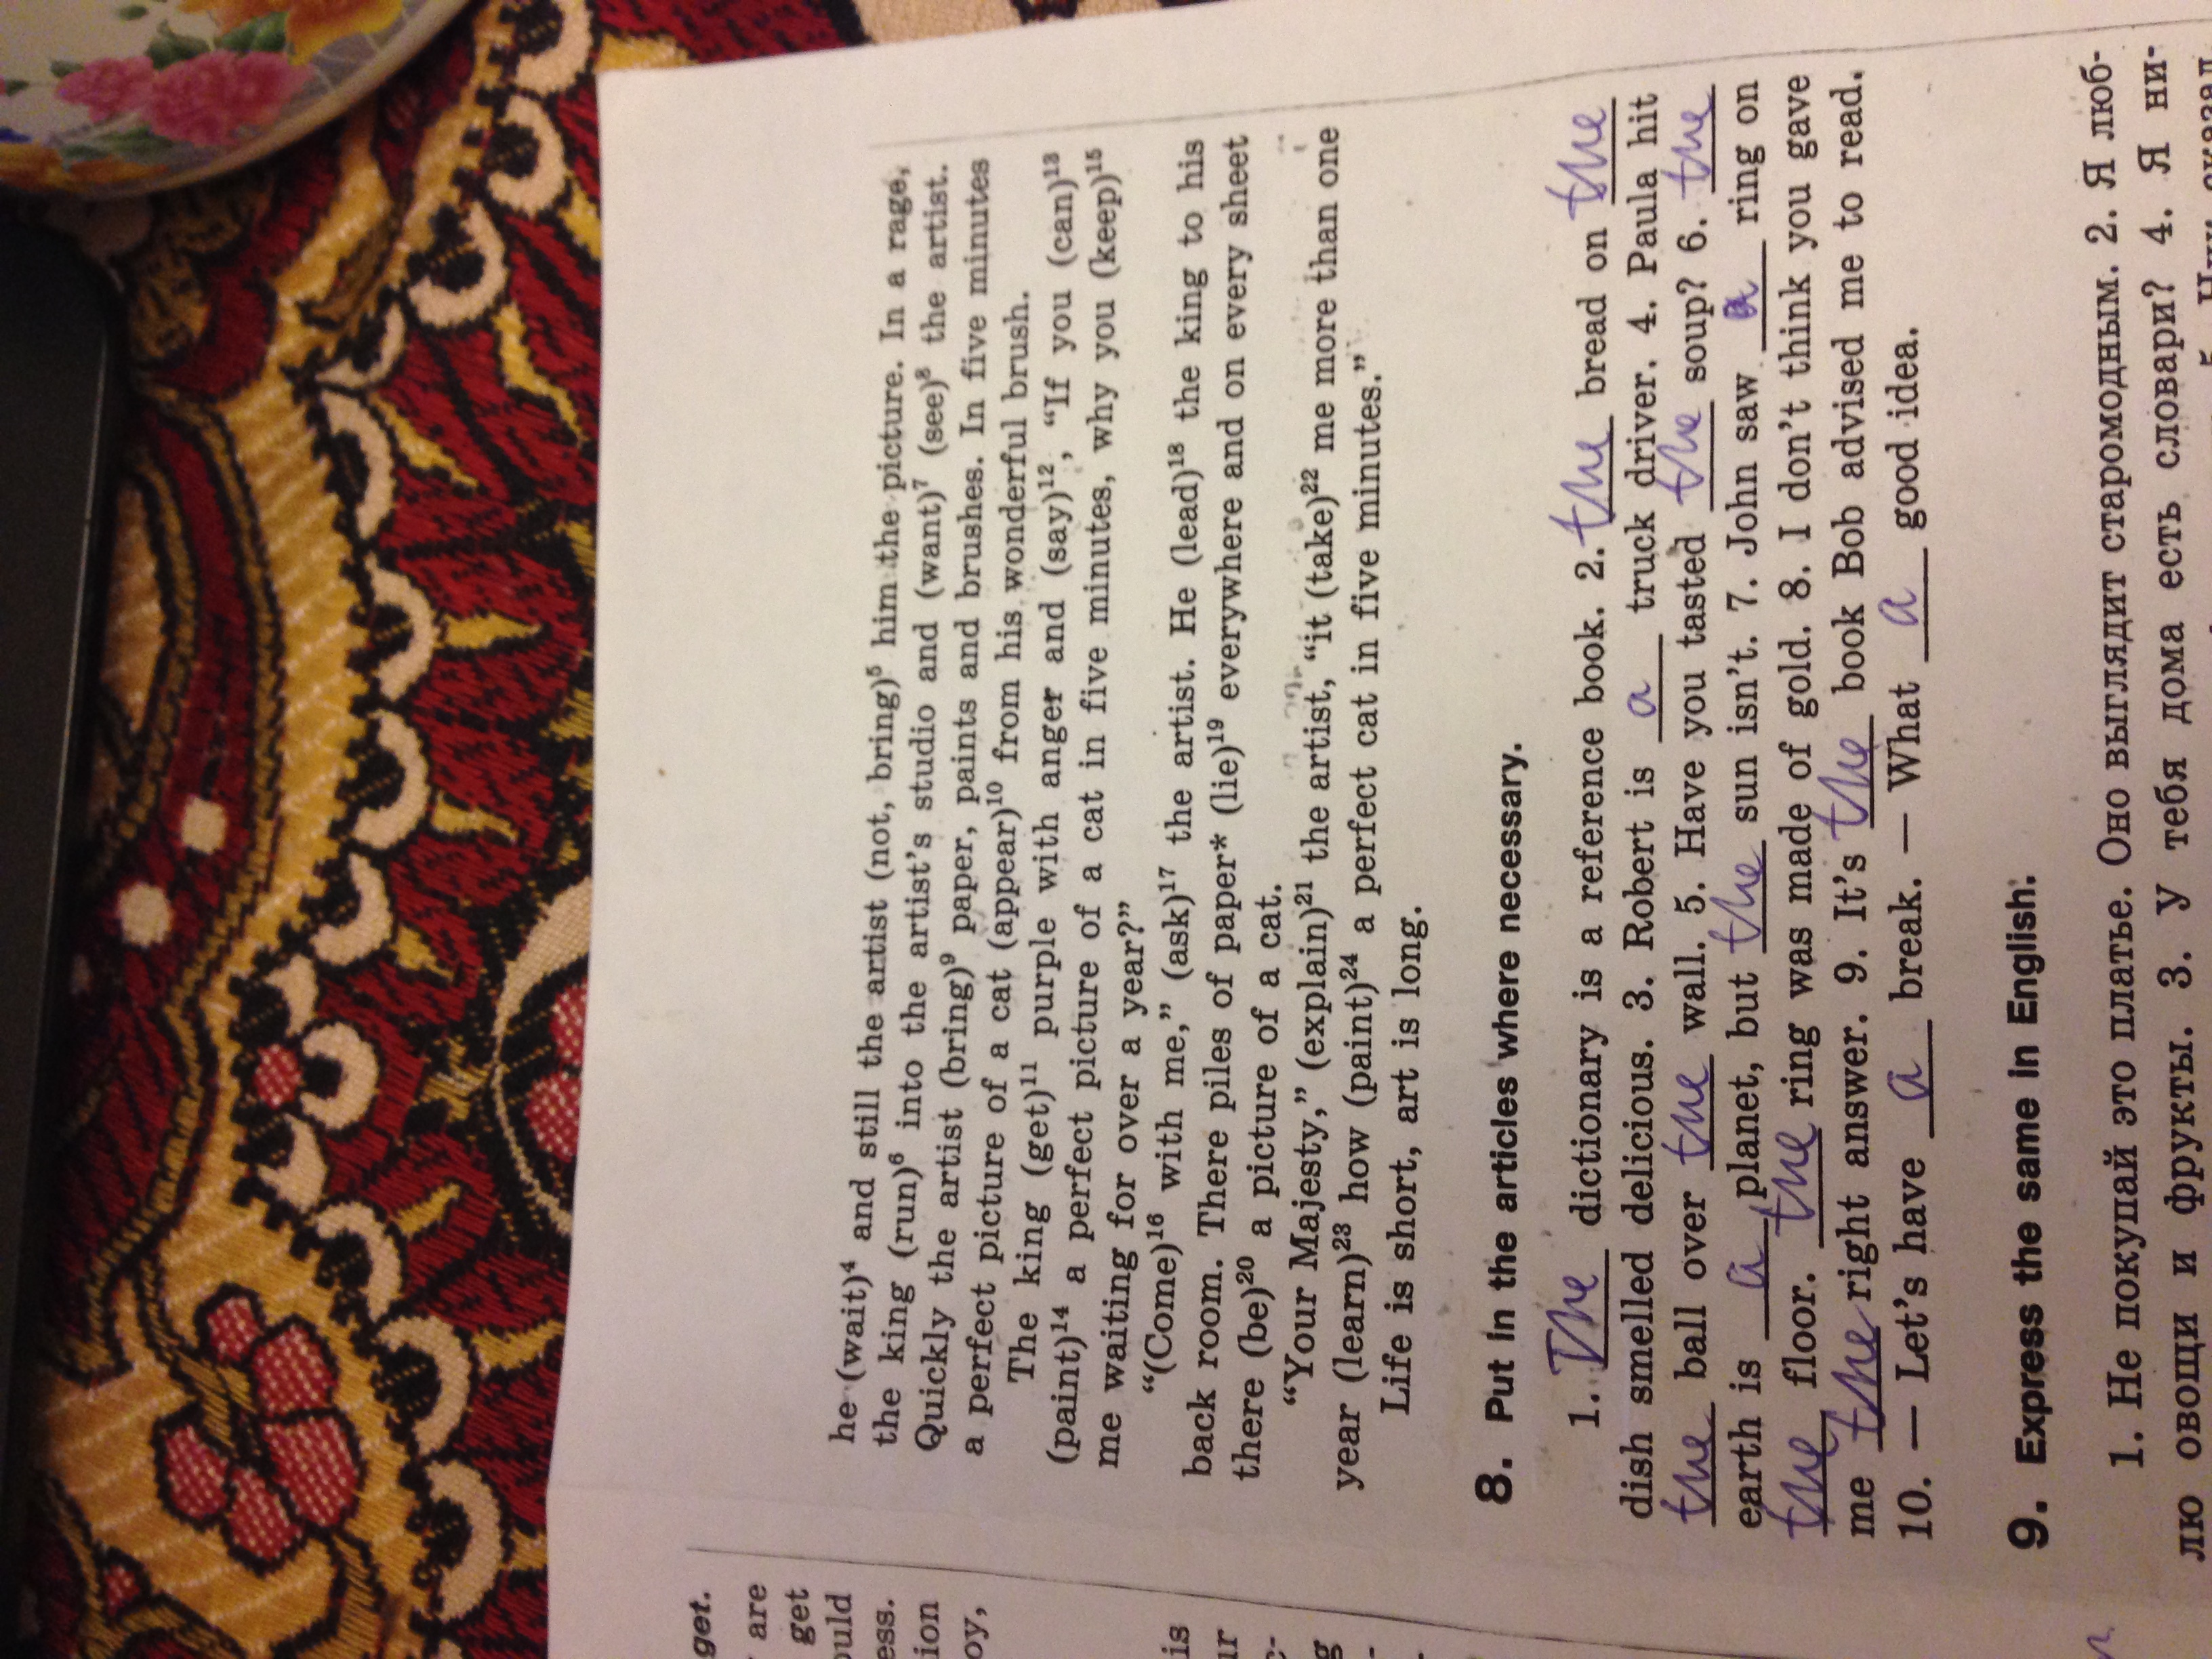 get.
are
get
ould
ess.
ion
oy,
is
ur
c-
g
he (wait)⁴ and still the artist (not, bring)⁵ him the picture. In a rage,
the king (run)⁶ into the artist's studio and (want)⁷ (see)⁸ the artist.
Quickly the artist (bring)⁹ paper, paints and brushes. In five minutes
a perfect picture of a cat (appear)¹⁰ from his wonderful brush.
The king (get)¹¹ purple with anger and (say)¹², “If you (can)¹³
(paint)¹⁴ a perfect picture of a cat in five minutes, why you (keep)¹⁵
me waiting for over a year?”
“(Come)¹⁶ with me,” (ask)¹⁷ the artist. He (lead)¹⁸ the king to his
back room. There piles of paper* (lie)¹⁹ everywhere and on every sheet
there (be)²⁰ a picture of a cat.
“Your Majesty,” (explain)²¹ the artist, “it (take)²² me more than one
year (learn)²³ how (paint)²⁴ a perfect cat in five minutes.”
Life is short, art is long.
8. Put in the articles where necessary.
1. The dictionary is a reference book. 2. the bread on the
dish smelled delicious. 3. Robert is a truck driver. 4. Paula hit
the ball over the wall. 5. Have you tasted the soup? 6. the
earth is a planet, but the sun isn't. 7. John saw a ring on
the floor. the ring was made of gold. 8. I don't think you gave
me the right answer. 9. It's the book Bob advised me to read.
10. — Let's have a break. — What a good idea.
9. Express the same in English.
1. Не покупай это платье. Оно выглядит старомодным. 2. Я люб-
лю овощи и фрукты. 3. У тебя дома есть словари? 4. Я ни-